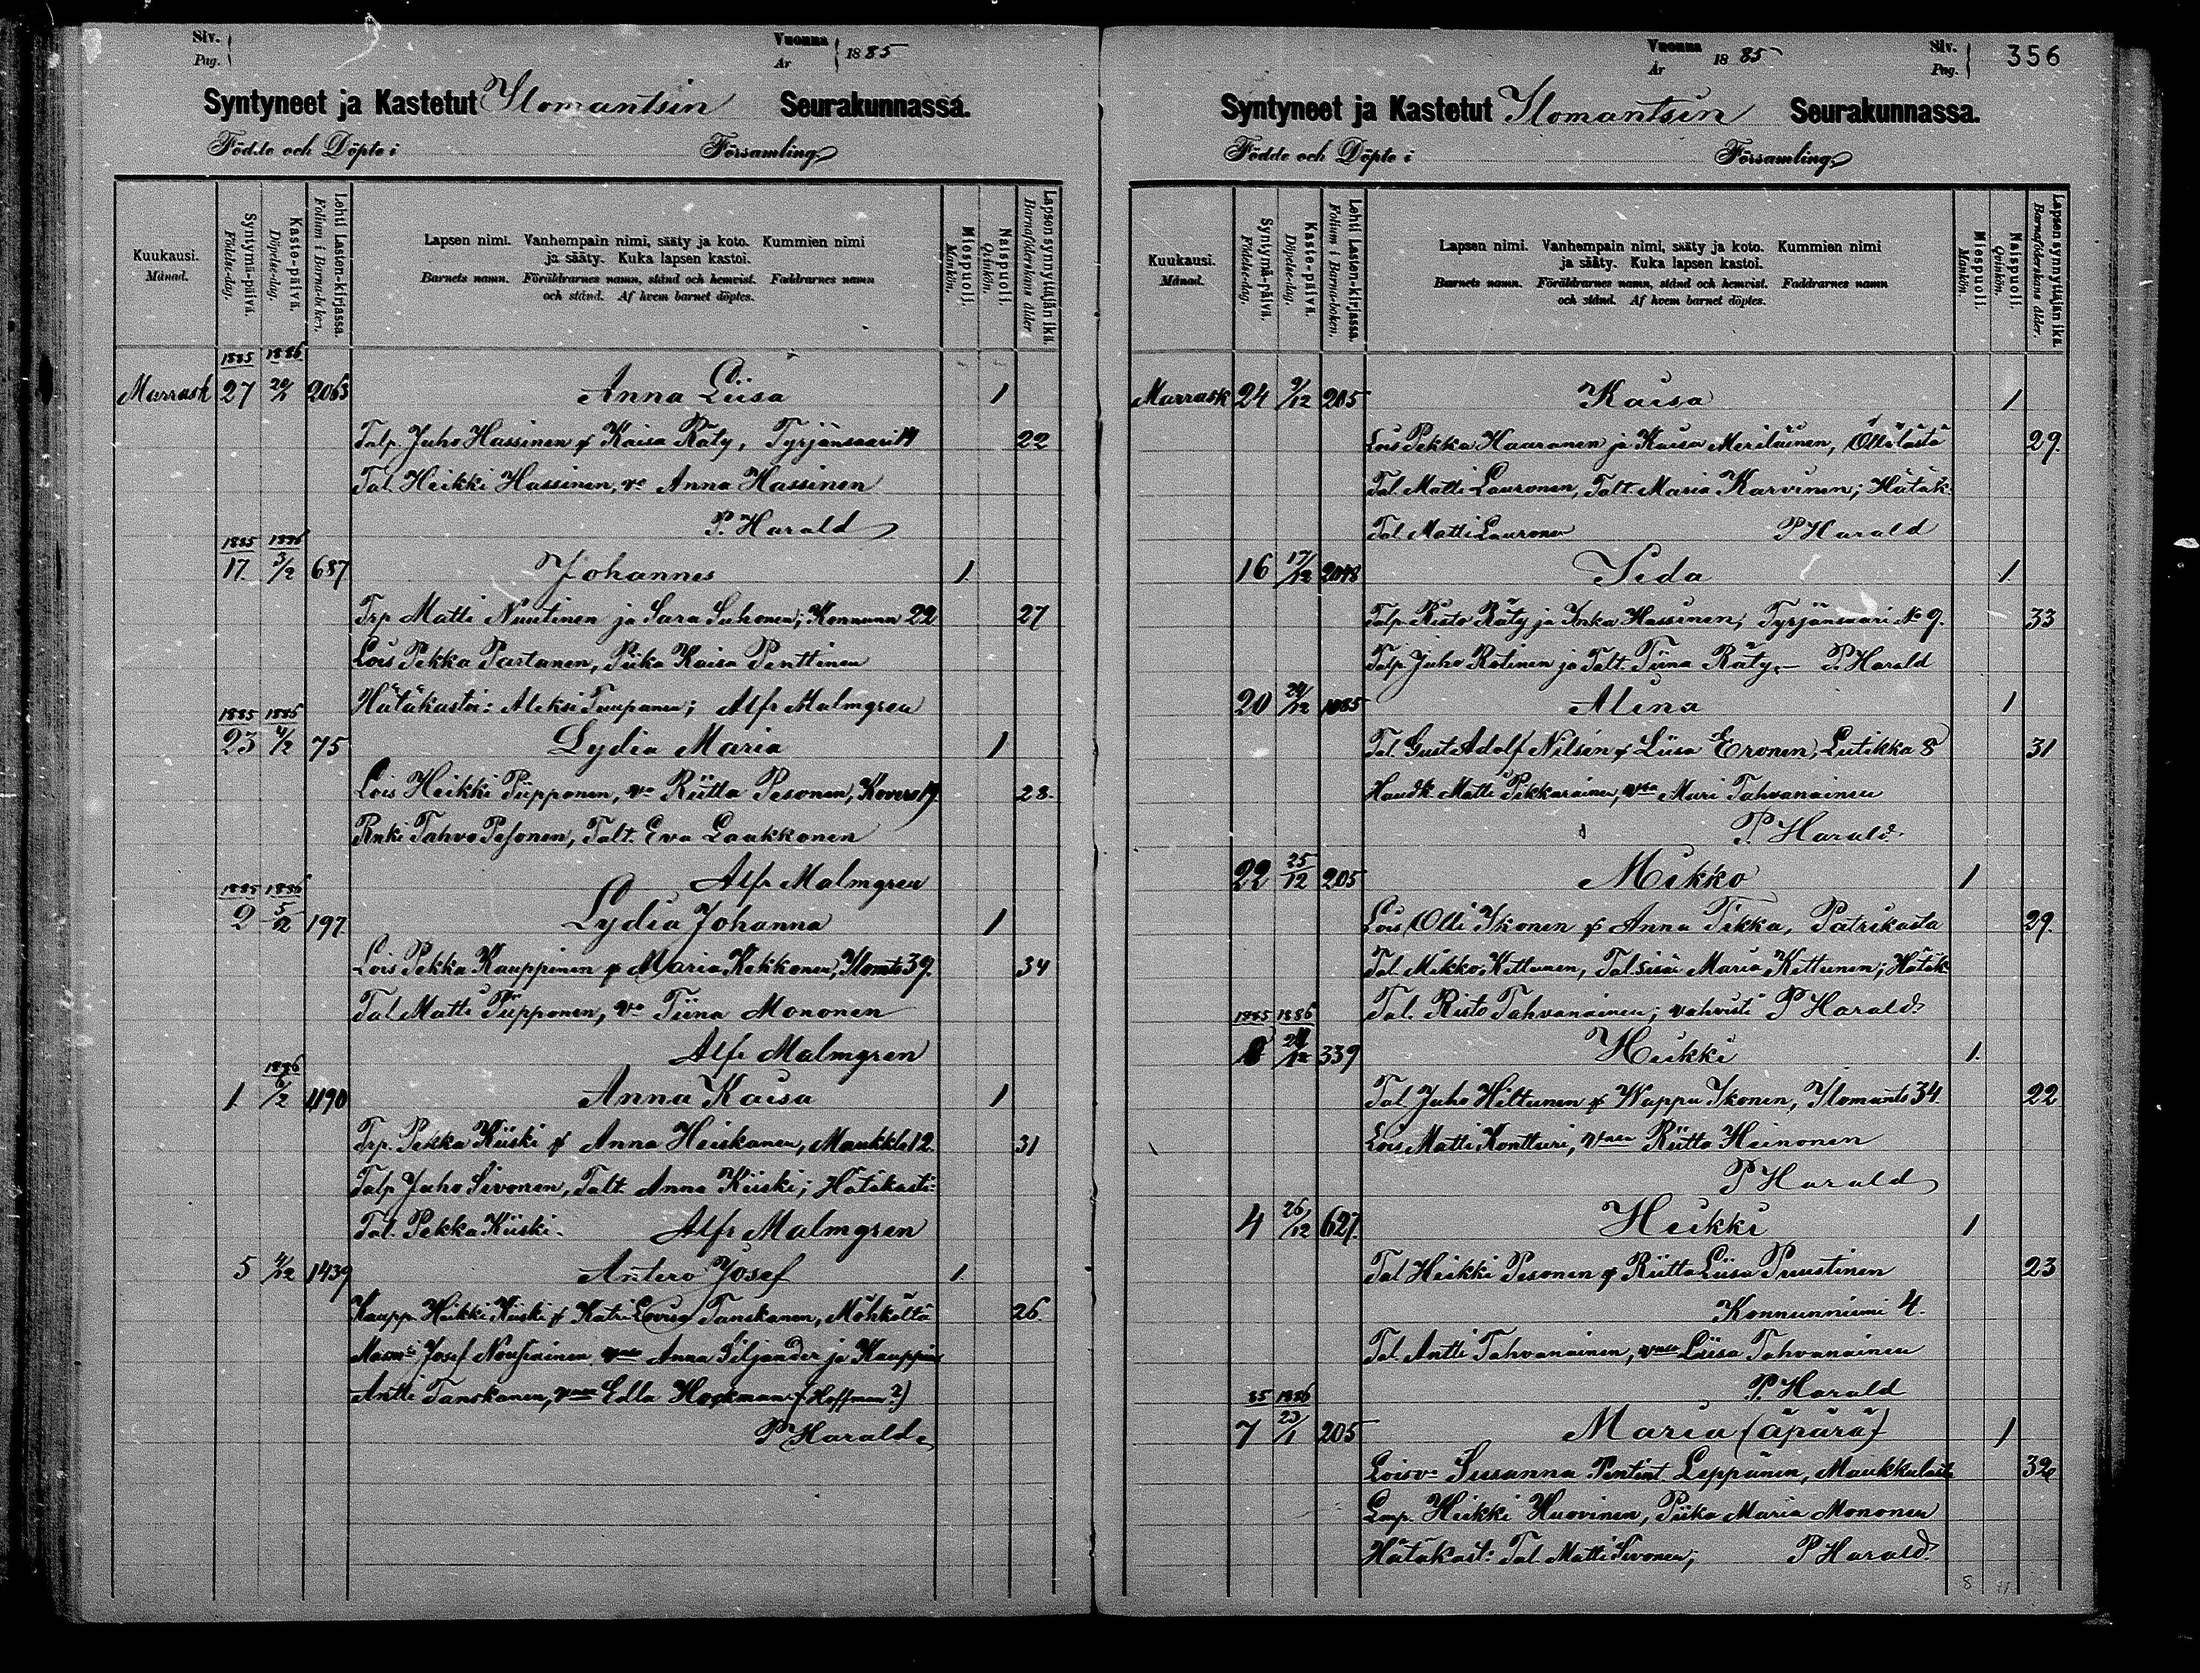 Siv.
Pag.
Vuonna
År
1885
Syntyneet ja Kastetut Ilomantsin Seurakunnassa.
Födde och Döpte i Församling
Kuukausi.
Månad.
Syntymä-päivä.
Födelse-dag.
Kaste-päivä.
Döpelse-dag.
Lehti Lasten-kirjassa.
Folium i Barna-boken.
Lapsen nimi. Vanhempain nimi, sääty ja koto. Kummien nimi
ja sääty. Kuka lapsen kastoi.
Barnets namn. Föräldrarnes namn, stånd och hemvist. Faddrarnes namn
och stånd. Af hvem barnet döptes.
Miespuoli.
Mankön.
Naispuoli.
Qvinkön.
Lapsen synnyttäjän ikä.
Barnaföderskans ålder.
1885 1886
Marrask 27 20/1 2063 Anna Liisa 1
Talp. Juho Hassinen & Kaisa Räty, Tyrjänsaari 14 22
Tal. Heikki Hassinen, vo Anna Hassinen
P. Harald
1885 1886
17. 3/2 687 Johannes 1.
Trp Matti Nuutinen ja Sara Suhonen; Konnunn 22 27
Lois Pekka Partanen, Piika Kaisa Penttinen
Hätäkastoi: Aleksi Tuupanen; Alfr Malmgren
1885 1886
23 4/2 75 Lydia Maria 1
Lois Heikki Piipponen, vo Riitta Pesonen, Kovero 19. 28.
Rnki Tahvo Pesonen, Talt. Eva Laukkonen
Alfr Malmgren
1885 1886
2 5/2 197 Lydia Johanna 1
Lois Pekka Kauppinen & Maria Kekkonen, Ilomts 39. 34
Tal Matti Piipponen, vo Tiina Mononen
Alfr Malmgren
1886
1 6/2 1190 Anna Kaisa 1
Trp. Pekka Kiiski & Anna Heiskanen, Maukkla 12. 31
Talp Juho Sivonen, Talt. Anna Kiiski; Hätäkasti:
Tal. Pekka Kiiski. Alfr Malmgren
5 4/12 1439 Antero Josef 1.
Kaupp. Heikki Kiiski & Katri Lovisa Tanskanen, Möhköltä 26.
Josef Nousiainen, Anna Siljander ja Kauppias
Antti Tanskanen, Edla Hockman (Hoffman?)
P Harald
Vuonna
År
1885
Siv.
Pag.
356
Syntyneet ja Kastetut Ilomantsin Seurakunnassa.
Födde och Döpte i Församling
Kuukausi.
Månad.
Syntymä-päivä.
Födelse-dag.
Kaste-päivä.
Döpelse-dag.
Lehti Lasten-kirjassa.
Folium i Barna-boken.
Lapsen nimi. Vanhempain nimi, sääty ja koto. Kummien nimi
ja sääty. Kuka lapsen kastoi.
Barnets namn. Föräldrarnes namn, stånd och hemvist. Faddrarnes namn
och stånd. Af hvem barnet döptes.
Miespuoli.
Mankön.
Naispuoli.
Qvinkön.
Lapsen synnyttäjän ikä.
Barnaföderskans ålder.
Marrask 24 9/12 205 Kaisa 1
Lois Pekka Haaranen ja Kaisa Meriläinen, Ollilasta 29.
Tal. Matti Lauronen, Talt. Maria Karvinen; Hätäk.
Tal Matti Lauronen P Harald
16 17/12 2048 Iida 1
Talp. Risto Räty ja Inka Hassinen, Tyrjänsaari No 9. 33
Talp. Juho Ratinen ja Talt. Tiina Räty.- P. Harald
20 20/12 1085 Alina 1
Tal. Gust Adolf Nilsin & Liisa Eronen, Lutikka 8 31
Matti Pikkarainen, Mari Tahvanainen
P. Harald.
22 25/12 205 Mikko 1
Lois Olli Ikonen & Anna Tikka, Patrikasta 29.
Tal. Mikko Kettunen, Tal sisar Maria Kettunen; Hätäk
Tal. Risto Tahvanainen; vahvisti P Harald.
1885 1886
339 Heikki 1.
Tal. Juho Hiltunen & Wappu Ikonen, Ilomants 34. 22
Lois Matti Kontturi, Riitta Heinonen
P Harald
4 26/12 627. Heikki 1
Tal Heikki Pesonen & Riitta Liisa Puustinen 23
Konnunniemi 4.
Tal. Antti Tahvanainen, Liisa Tahvanainen
P. Harald
85 1886
7 23/1 205 Maria (äpärä) 1
Lois vo Susanna Pentint. Leppänen, Maukkulasta 32
Heikki Huovinen, Piika Maria Mononen
Hätäkast: Tal Matti Sivonen; P Harald.
8 11.